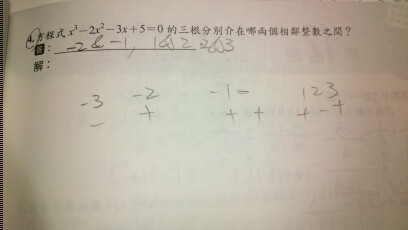 4.方程式 x³−2x²−3x+5=0 的三根分別介在哪兩個相鄰整數之間？
答：-2&-1, 1&2 2&3
解：
-3 -2 -1 0 1 2 3
- + + + + - +